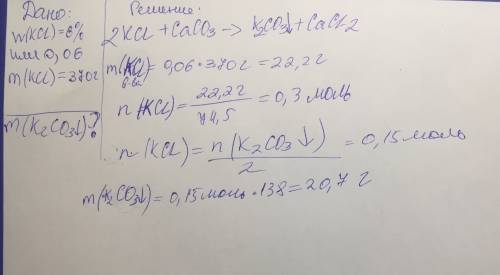 Дано:
w(KCl)=6%
или 0,06
m(KCl)=370г
m(K2CO3↓)?
Решение:
2KCl + CaCO3 → K2CO3↓ + CaCl2
m(KCl)= 0,06*370г = 22,2г
в-ва
n(KCl)= 22,2г / 74,5 = 0,3 моль
n(KCl) = n(K2CO3↓) / 2 = 0,15 моль
m(K2CO3↓)= 0,15 моль * 138 = 20,7 г